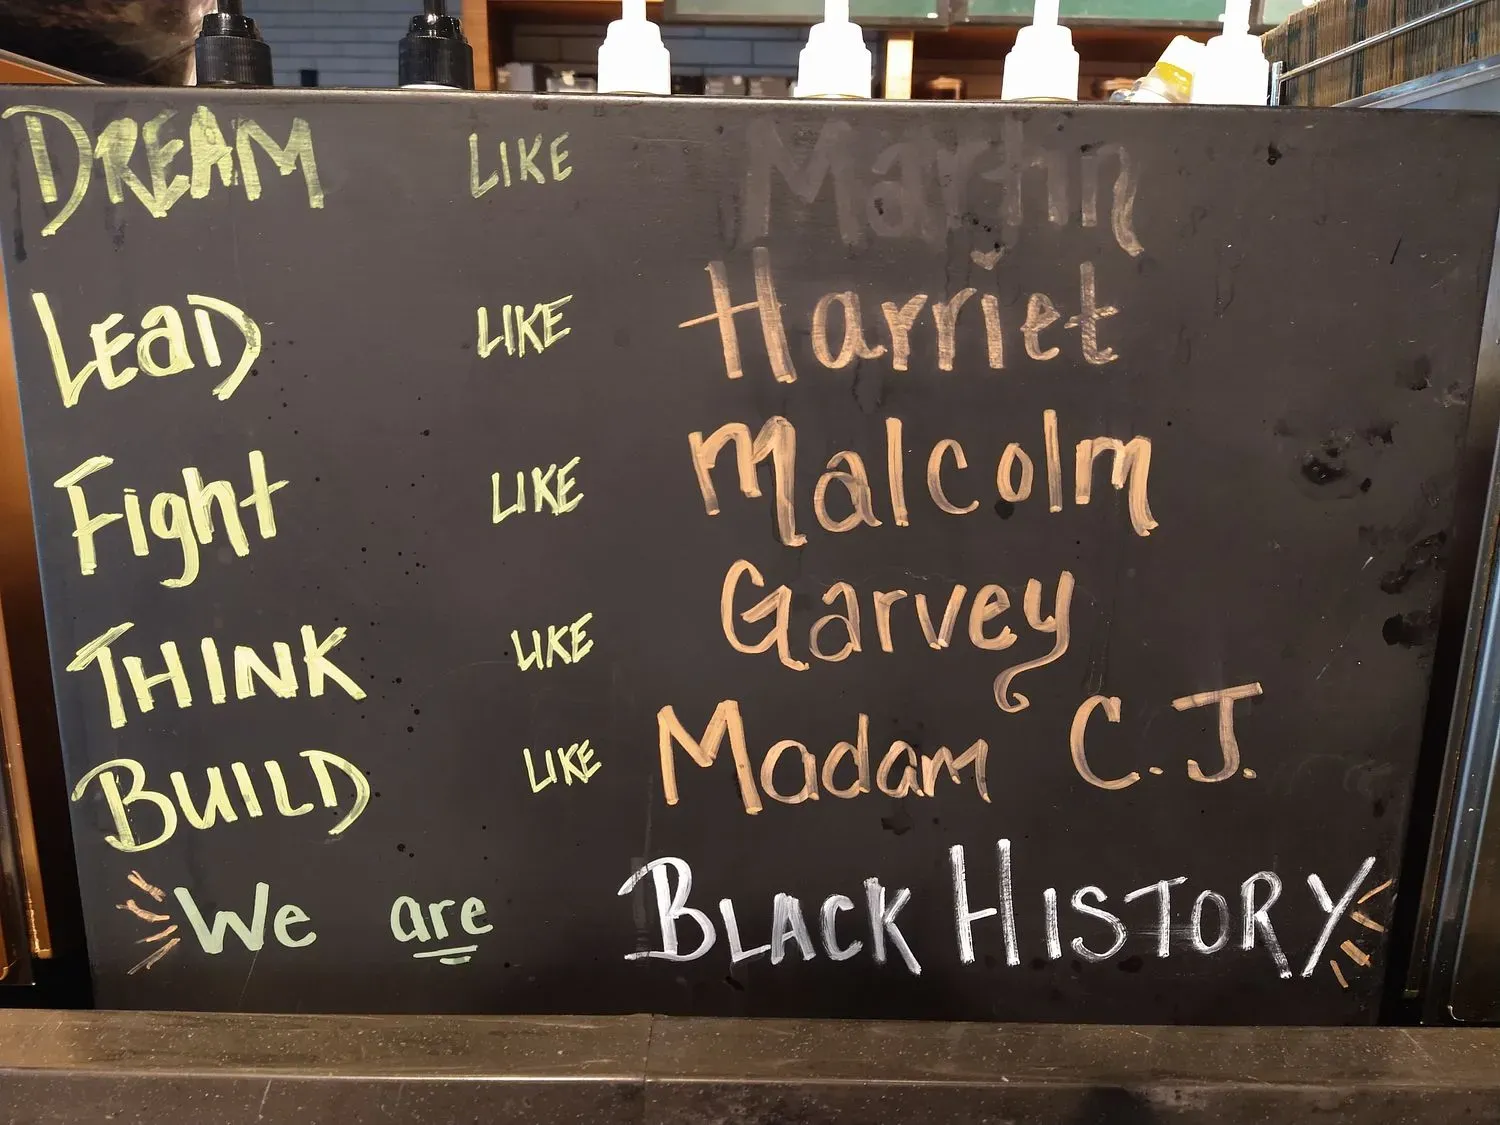 DREAM LIKE Martin
LEaD LIKE Harriet
Fight LIKE Malcolm
THINK LIKE Garvey
BUILD LIKE Madam C.J.
We are BLACK HISTORY